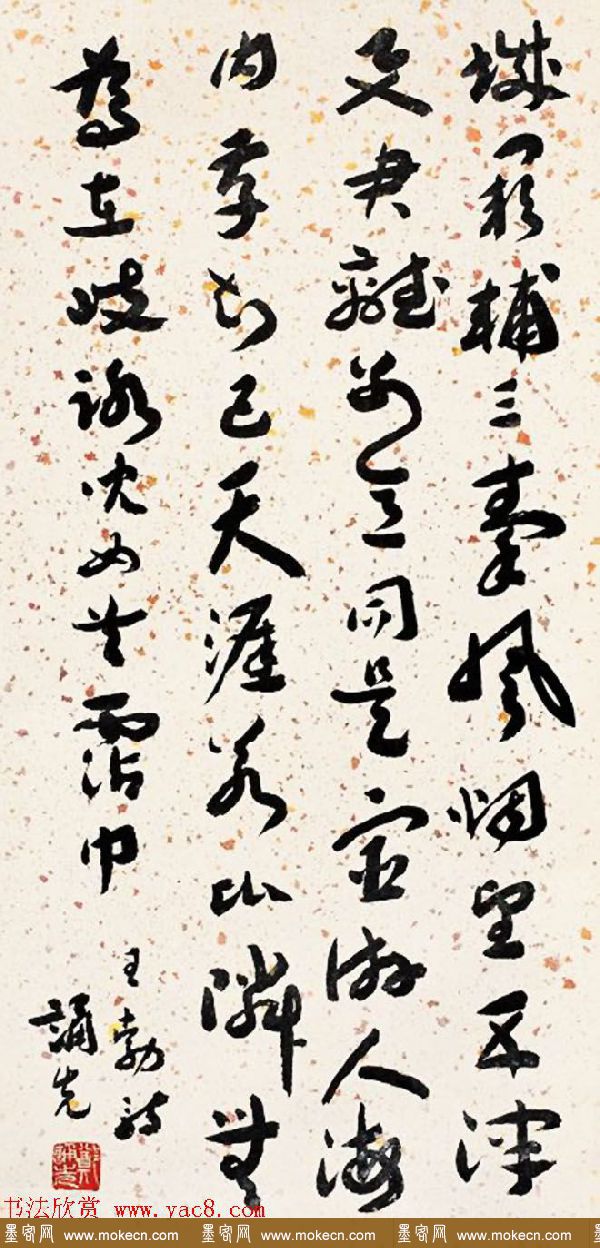 城闕輔三秦風烟望五津
与君離別意同是宦游人海
内存知己天涯若比隣無
為在歧路兒女共霑巾
王勃詩
誦先
鄭誦先
书法欣赏 www.yac8.com
墨客网 www.mokecn.com 墨客网 www.mokecn.com 墨客网 www.mokecn.com